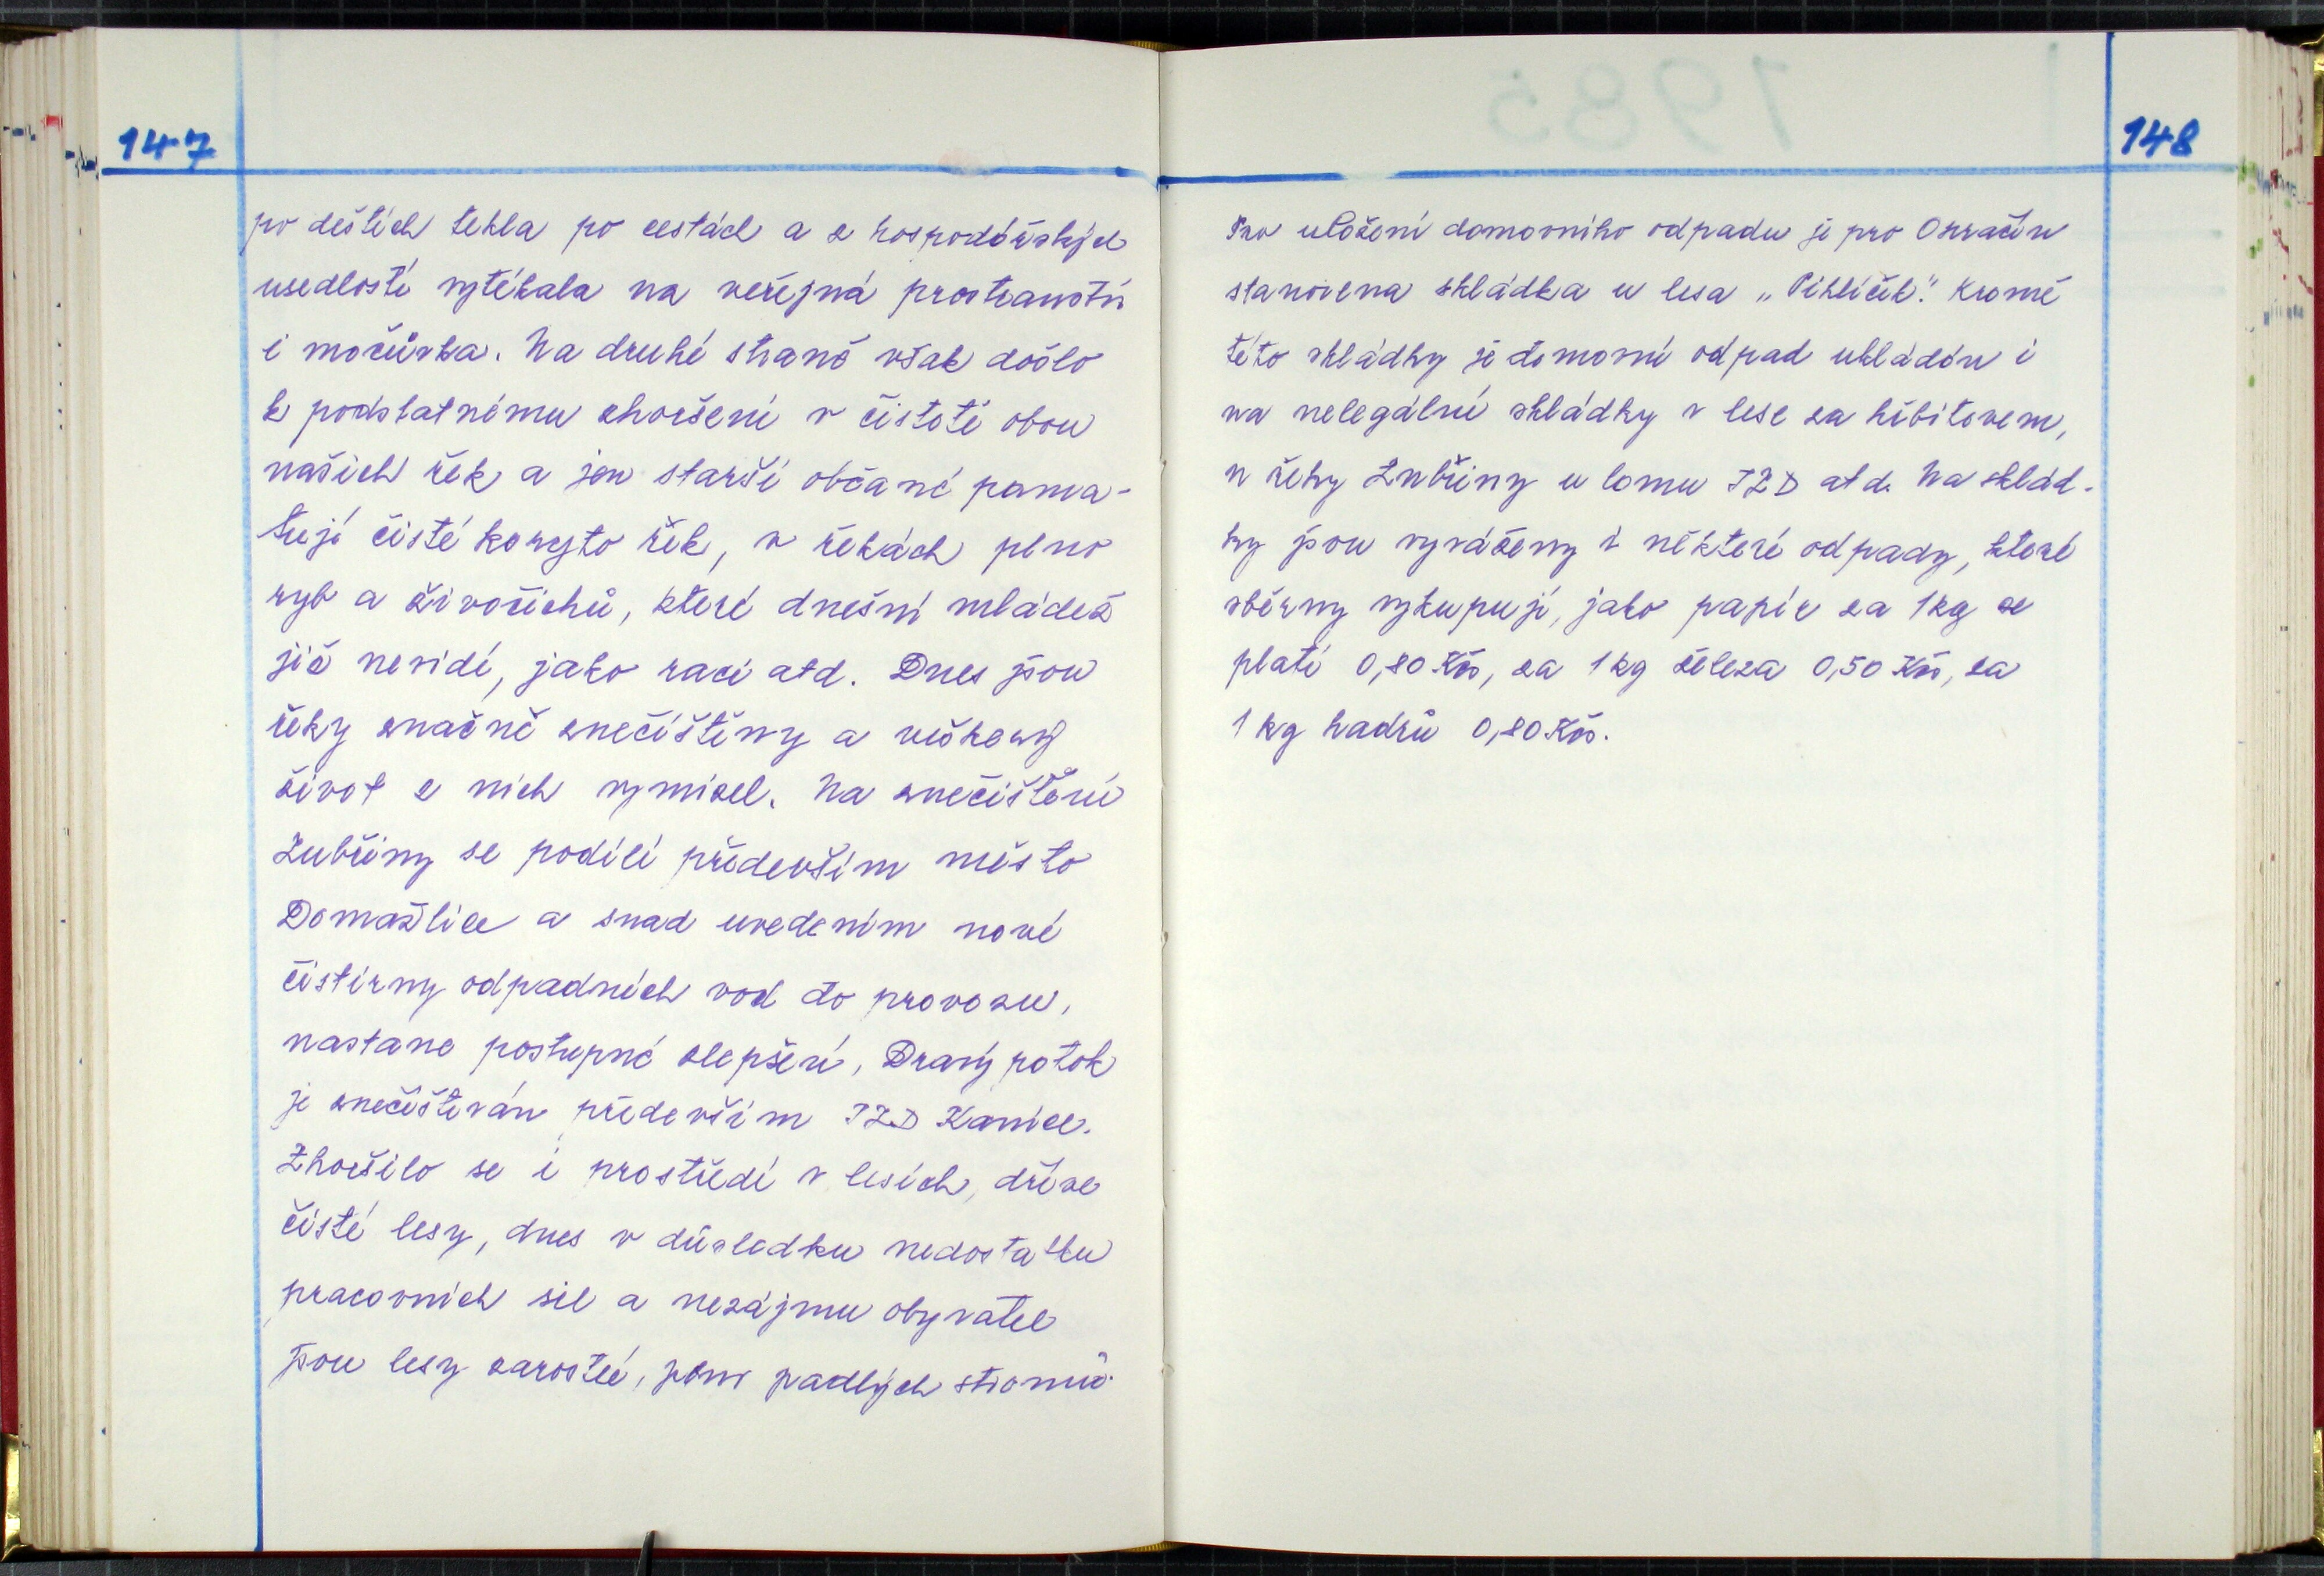 147
po deštích tekla po cestách a z hospodářských
usedlostí vytékala na veřejná prostranství
i močůvka. Na druhé straně však došlo
k podstatnému zhoršení v čistotě obou
našich řek a jen starší občané pama-
tují čisté koryto řek, v řekách plno
ryb a živočichů, které dnešní mládež
již nevidí, jako raci atd. Dnes jsou
řeky značně znečištěny a veškerý
život z nich vymizel. Na znečištění
Zubřiny se podílí především město
Domažlice a snad uvedením nové
čistírny odpadních vod do provozu,
nastane postupné zlepšení, Dravý potok
je znečišťován především JZD Kanice.
Zhoršilo se i prostředí v lesích, dříve
čisté lesy, dnes v důsledku nedostatku
pracovních sil a nezájmu obyvatel
jsou lesy zarostlé, plno padlých stromů.
148
Pro uložení domovního odpadu je pro Osvračín
stanovena skládka u lesa „Pihlíček". Kromě
této skládky je domovní odpad ukládán i
na nelegální skládky v lese za hřbitovem,
u řeky Zubřiny u lomu JZD atd. Na sklád-
ky jsou vyváženy i některé odpady, které
sběrny vykupují, jako papír za 1kg se
platí 0,80 Kčs, za 1 kg železa 0,50 Kčs, za
1 kg hadrů 0,80 Kčs.